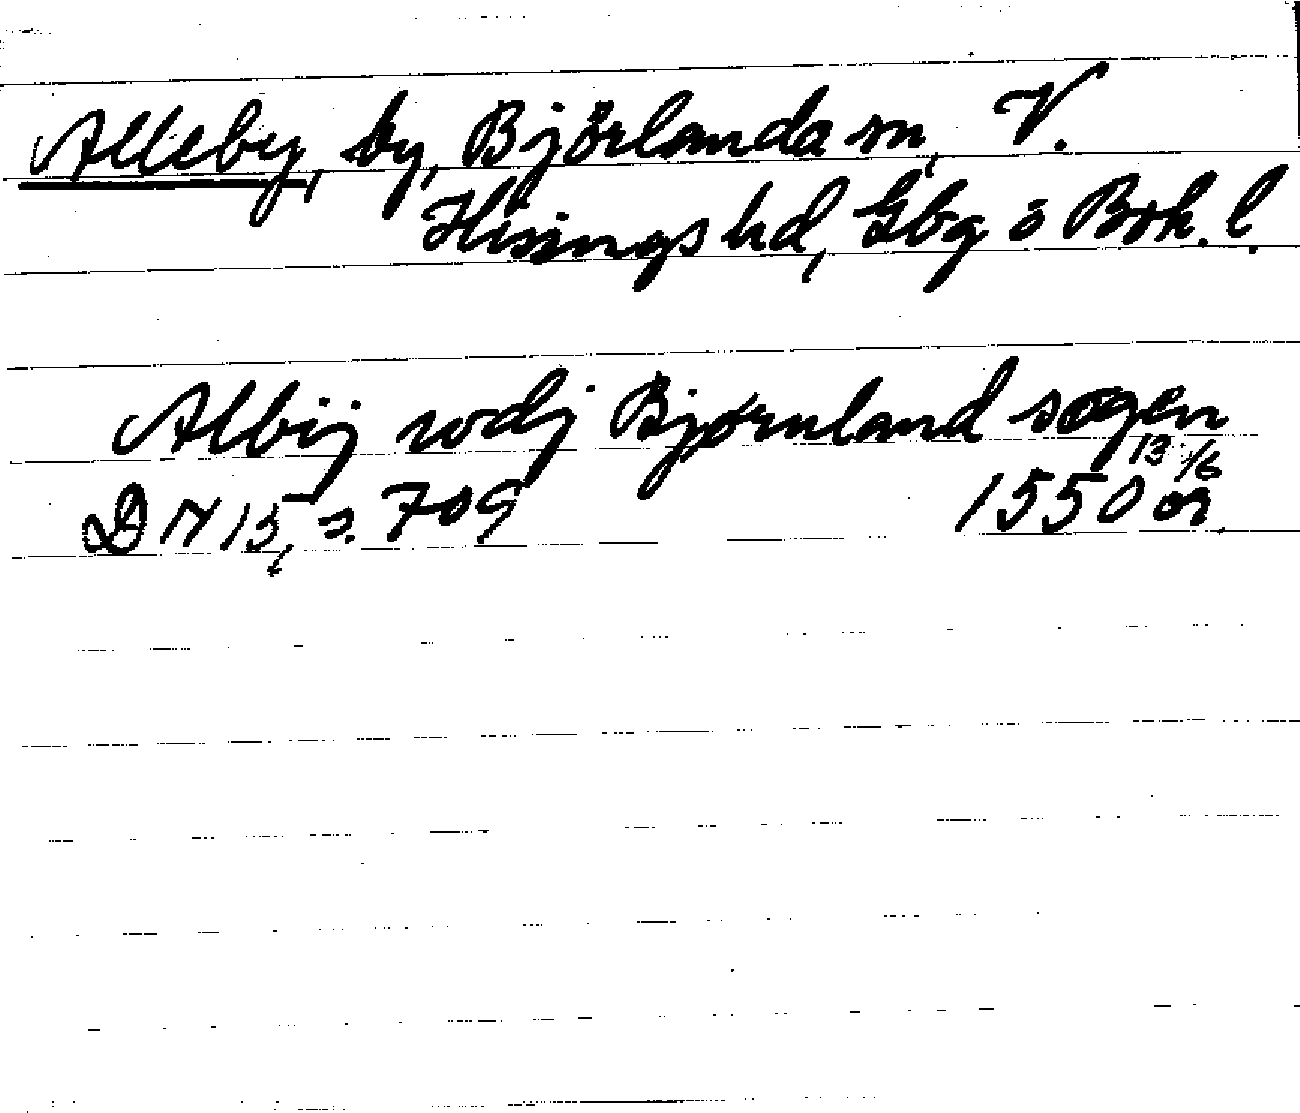 Alleby, by, Björlanda sn, V.
Hisings hd, Gbg o Boh. l.
Albij wdj Bjørnland sogen
13/6
DN 15, s. 709 1550 or.